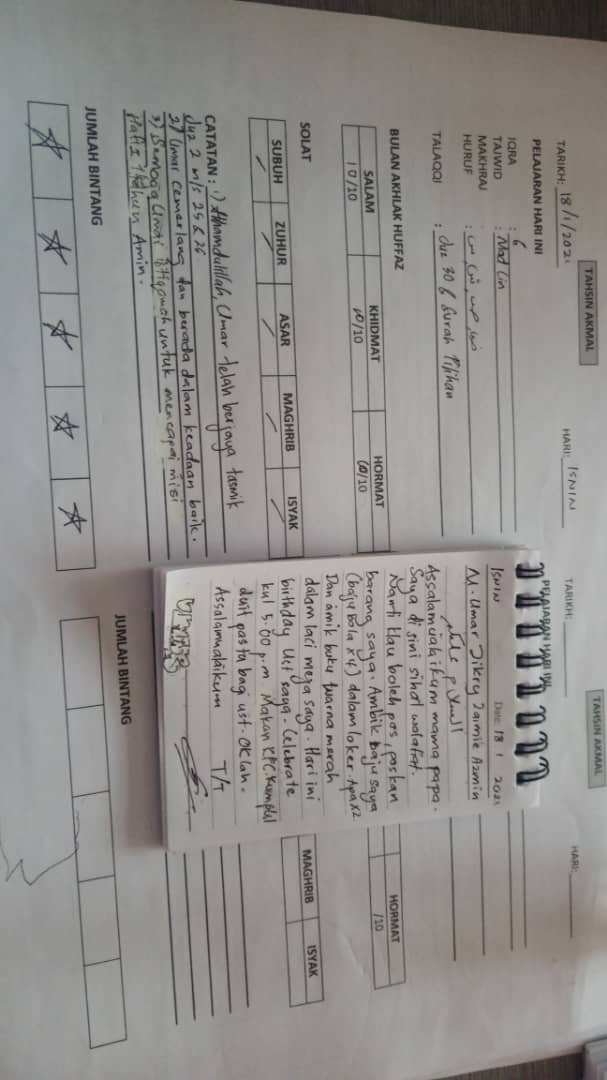 TAHSIN AKMAL
TARIKH: 18/1/2021
HARI: ISNIN
PELAJARAN HARI INI
IQRA : 6
TAJWID : Mad Lin
MAKHRAJ
HURUF
TALAQQI : Juz 30 & Surah Pilihan
BULAN AKHLAK HUFFAZ
SALAM KHIDMAT HORMAT
10/10 10/10 10/10
SOLAT
SUBUH ZUHUR ASAR MAGHRIB ISYAK
/ / / / /
CATATAN : 1) Alhamdulillah, Umar telah berjaya tasmik
Juz 2 m/s 25 & 26.
2) Umar cemerlang dan berada dalam keadaan baik.
3) Semoga Umar untuk mencapai misi
Hafiz Amin.
JUMLAH BINTANG
TAHSIN AKMAL
TARIKH:
HARI:
PELAJARAN HARI INI
HORMAT
/10
MAGHRIB ISYAK
JUMLAH BINTANG
ISNIN Date: 18 1 2021
M. Umar Dikry Zaimie Azmin
السلام عليكم
Assalamualaikum mama papa.
Saya di sini sihat walafiat.
Nanti klau boleh pos, poskan
barang saya. Ambik baju saya
(baju bola x4) dalam loker. Apax2
Dan amik buku warna merah
dalam laci meja saya. Hari ini
birthday Ust saya. Celebrate
kul 5.00 p.m Makan KFC. Kumpul
duit pastu bagi ust. Oklah.
Assalamualaikum T/T